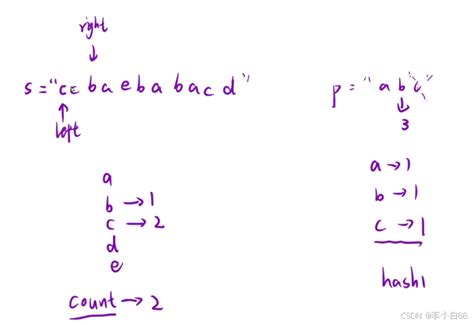 right
s = "cc b a e b a b a c d"
left
p = "a b c"
3
a
b → 1
c → 2
d
e
count → 2
a → 1
b → 1
c → 1
hash1
CSDN @李小白66